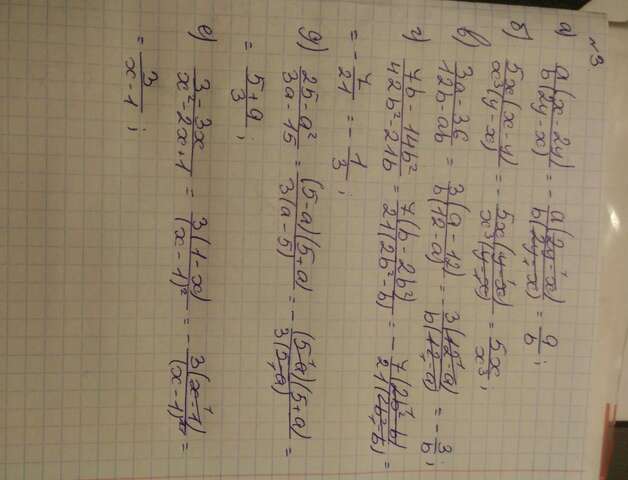 №3
а) a(x-2y)/b(2y-x) = - a(2y-x)/b(2y-x) = a/b;
б) 5x(x-y)/x³(y-x) = - 5x(y-x)/x³(y-x) = 5x/x³;
в) 3a-36/12b-ab = 3(a-12)/b(12-a) = - 3(12-a)/b(12-a) = - 3/b;
г) 7b-14b²/42b²-21b = 7(b-2b²)/21(2b²-b) = - 7(2b²-b)/21(2b²-b) =
= - 7/21 = - 1/3;
д) 25-a²/3a-15 = (5-a)(5+a)/3(a-5) = - (5-a)(5+a)/3(5-a) =
= 5+a/3;
е) 3-3x/x²-2x+1 = 3(1-x)/(x-1)² = - 3(x-1)/(x-1)² =
= 3/x-1;